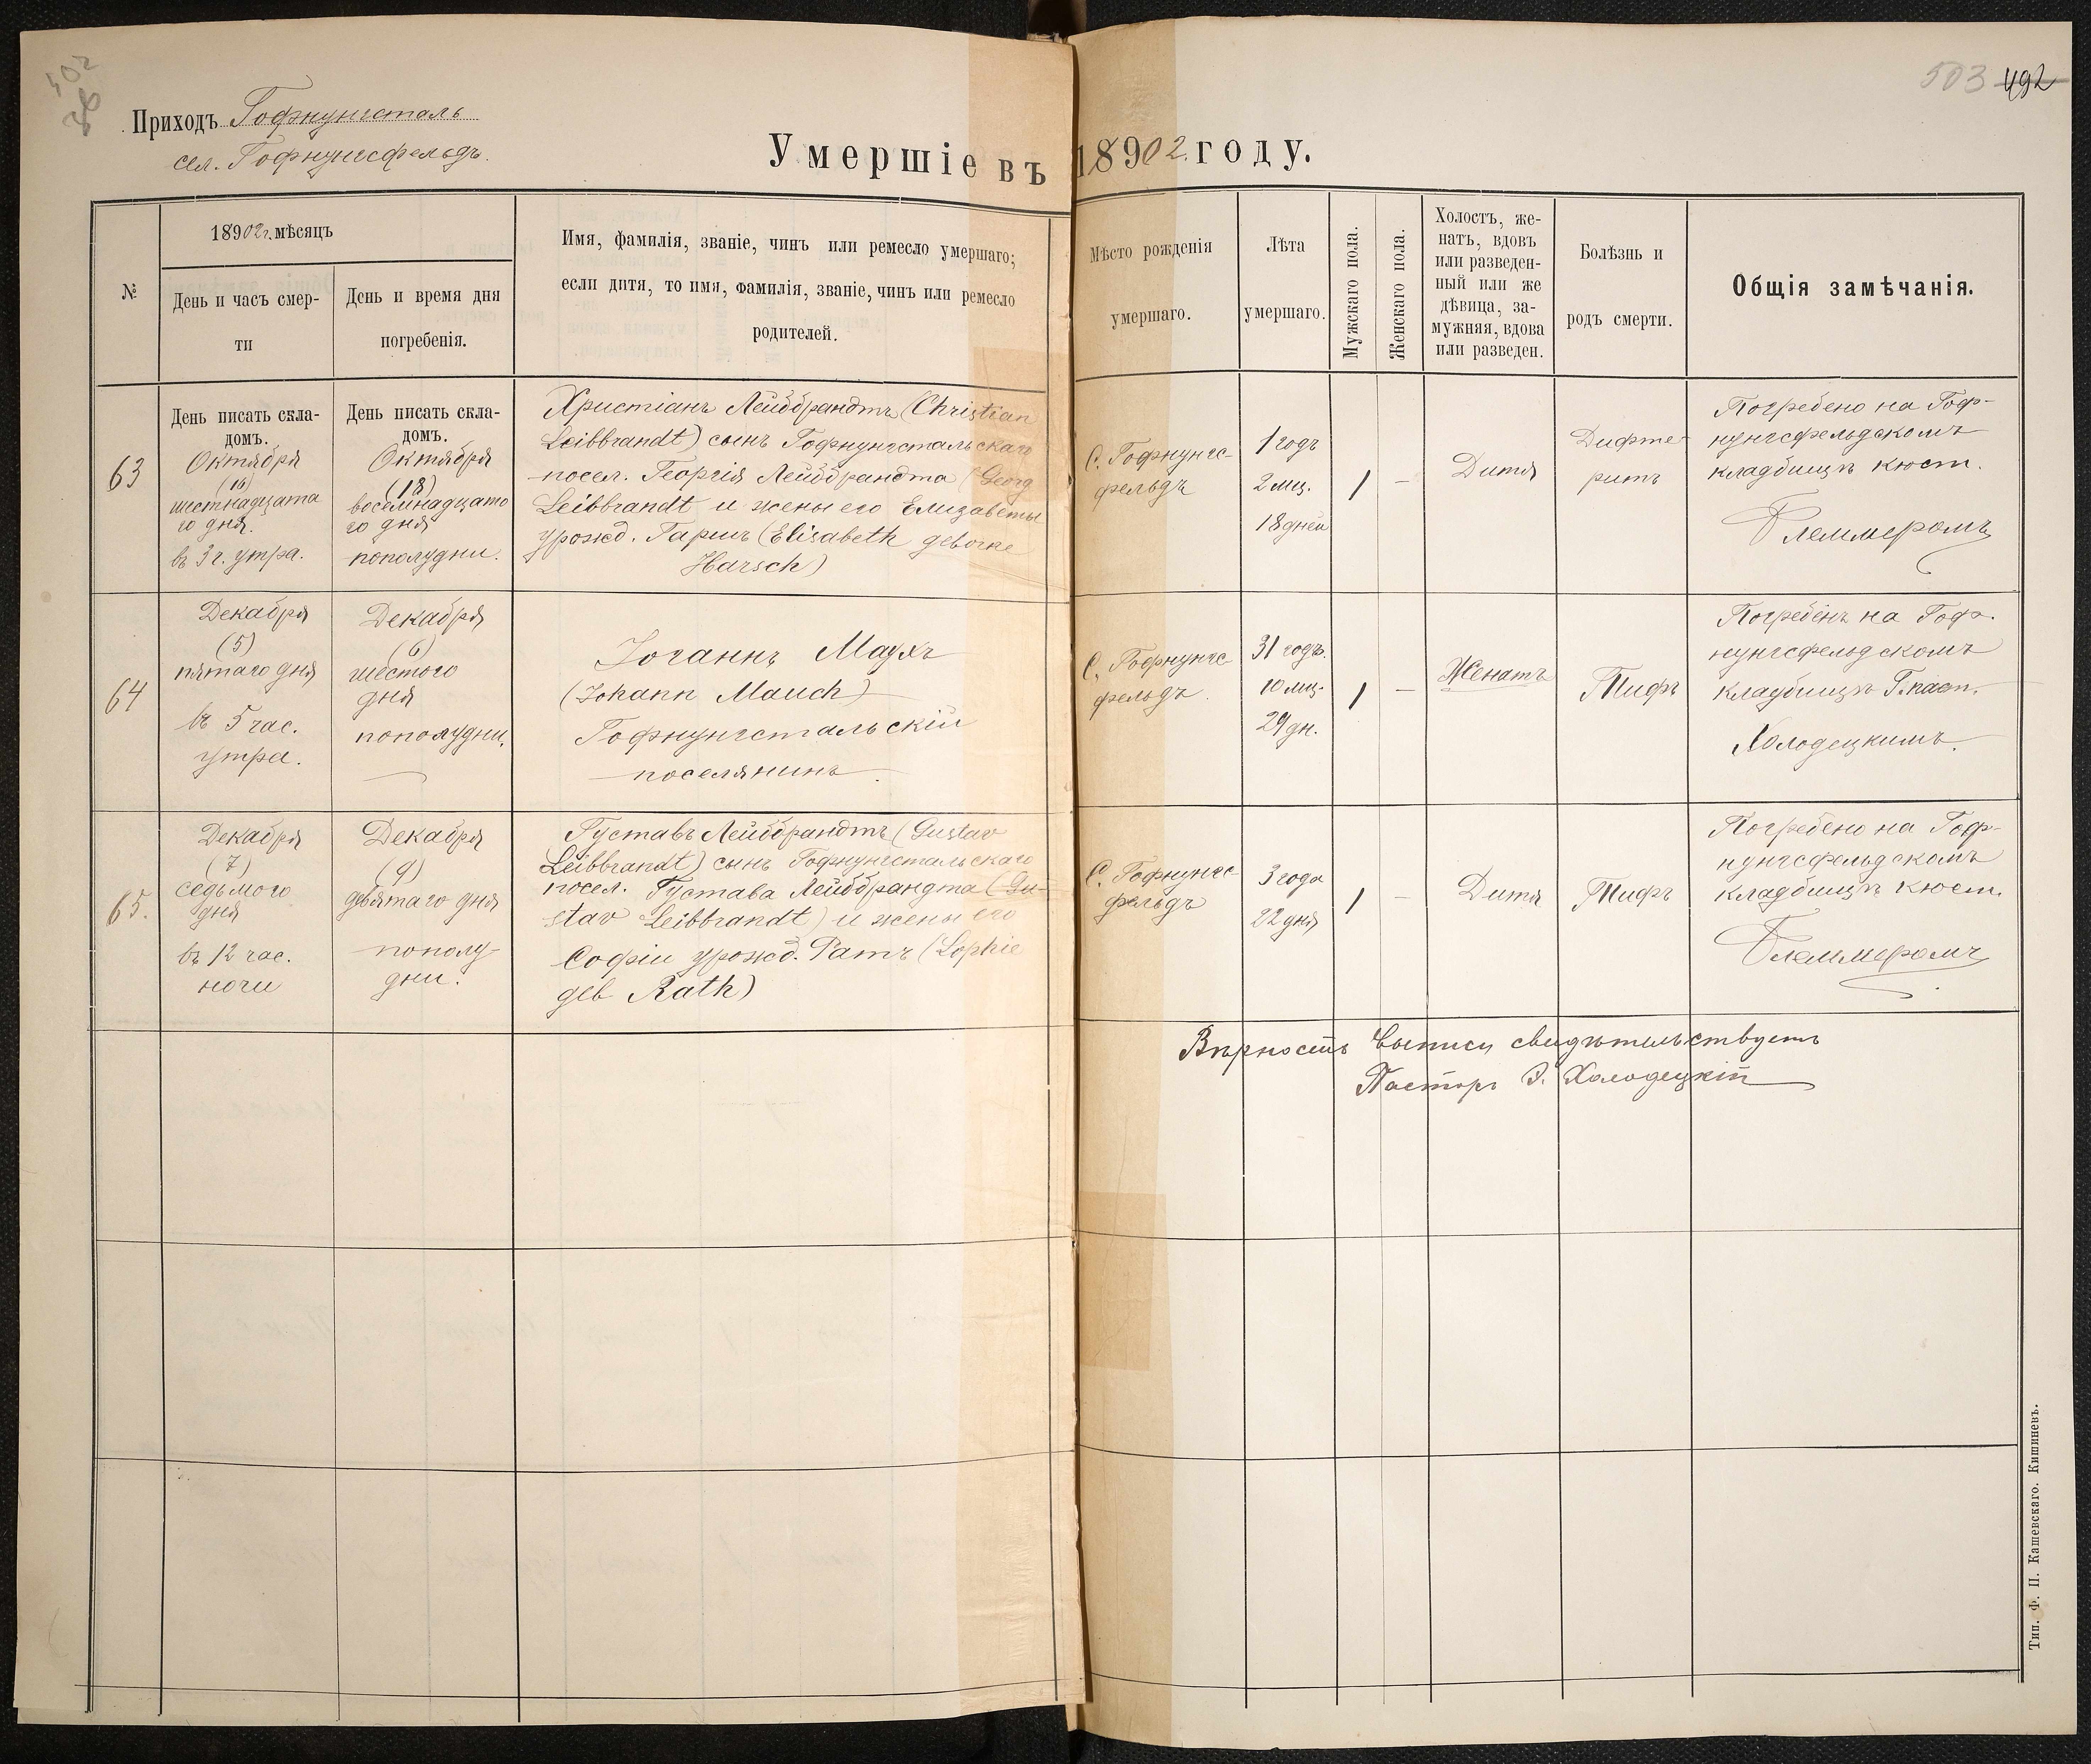 503 492
Приходъ Гофнунгсталь
сел. Гофнунгсфельдъ.
Умершіе въ 18902. году.
№
18902г. мѣсяцъ
День и часъ смер-
ти
День и время дня
погребенія.
Имя, фамилія, званіе, чинъ или ремесло умершаго;
если дитя, то имя, фамилія, званіе, чинъ или ремесло
родителей.
Мѣсто рожденія
умершаго.
Лѣта
умершаго.
Мужскаго пола.
Женскаго пола.
Холостъ, же-
натъ, вдовъ
или разведен-
ный или же
дѣвица, за-
мужняя, вдова
или разведен.
Болѣзнь и
родъ смерти.
Общія замѣчанія.
63
День писать скла-
домъ.
Октября
(16)
шестнадцата
го дня.
въ 3 ч. утра.
День писать скла-
домъ.
Октября
(18)
восемнадцато
го дня
пополудни.
Христіанъ Лейббрандтъ (Christian
Leibbrandt) сынъ Гофнунгстальскаго
посел. Георгія Лейббрандта (Georg
Leibbrandt и жены его Елизаветы
урожд. Гаршъ (Elisabeth geborne
Harsch)
С. Гофнунгс-
фельдъ
1 годъ
2 мц.
18 дней
1
-
Дитя
Дифте-
ритъ
Погребено на Гоф-
нунгсфельдскомъ
кладбищѣ кюст.
Блеммеромъ
64
Декабря
(5)
пятаго дня
въ 5 час.
утра.
Декабря
(6)
шестого
дня
пополудни.
Іоганнъ Маухъ
(Johann Mauch)
Гофнунгстальскій
поселянинъ.
С. Гофнунгс-
фельдъ.
31 годъ.
10 мц.
29 дн.
1
-
Женатъ
Тифъ
Погребенъ на Гоф.
нунгсфельдскомъ
кладбищѣ Г. паст.
Холодецкимъ.
65.
Декабря
(7)
седьмого
дня
въ 12 час.
ночи
Декабря
(9)
девятаго дня
пополу-
дни.
Густавъ Лейббрандтъ (Gustav
Leibbrandt) сынъ Гофнунгстальскаго
посел. Густава Лейббрандта (Gu-
stav Leibbrandt) и жены его
Софіи урожд. Ратъ (Sophie
geb Rath)
С. Гофнунгс
фельдъ
3 года
22 дня
1
-
Дитя
Тифъ
Погребено на Гоф-
нунгсфельдскомъ
кладбищѣ кюст.
Блеммеромъ.
Вѣрность выписи свидѣтельствуетъ
Пасторъ Э. Холодецкій
Тип. Ф. П. Кашевскаго. Кишиневъ.